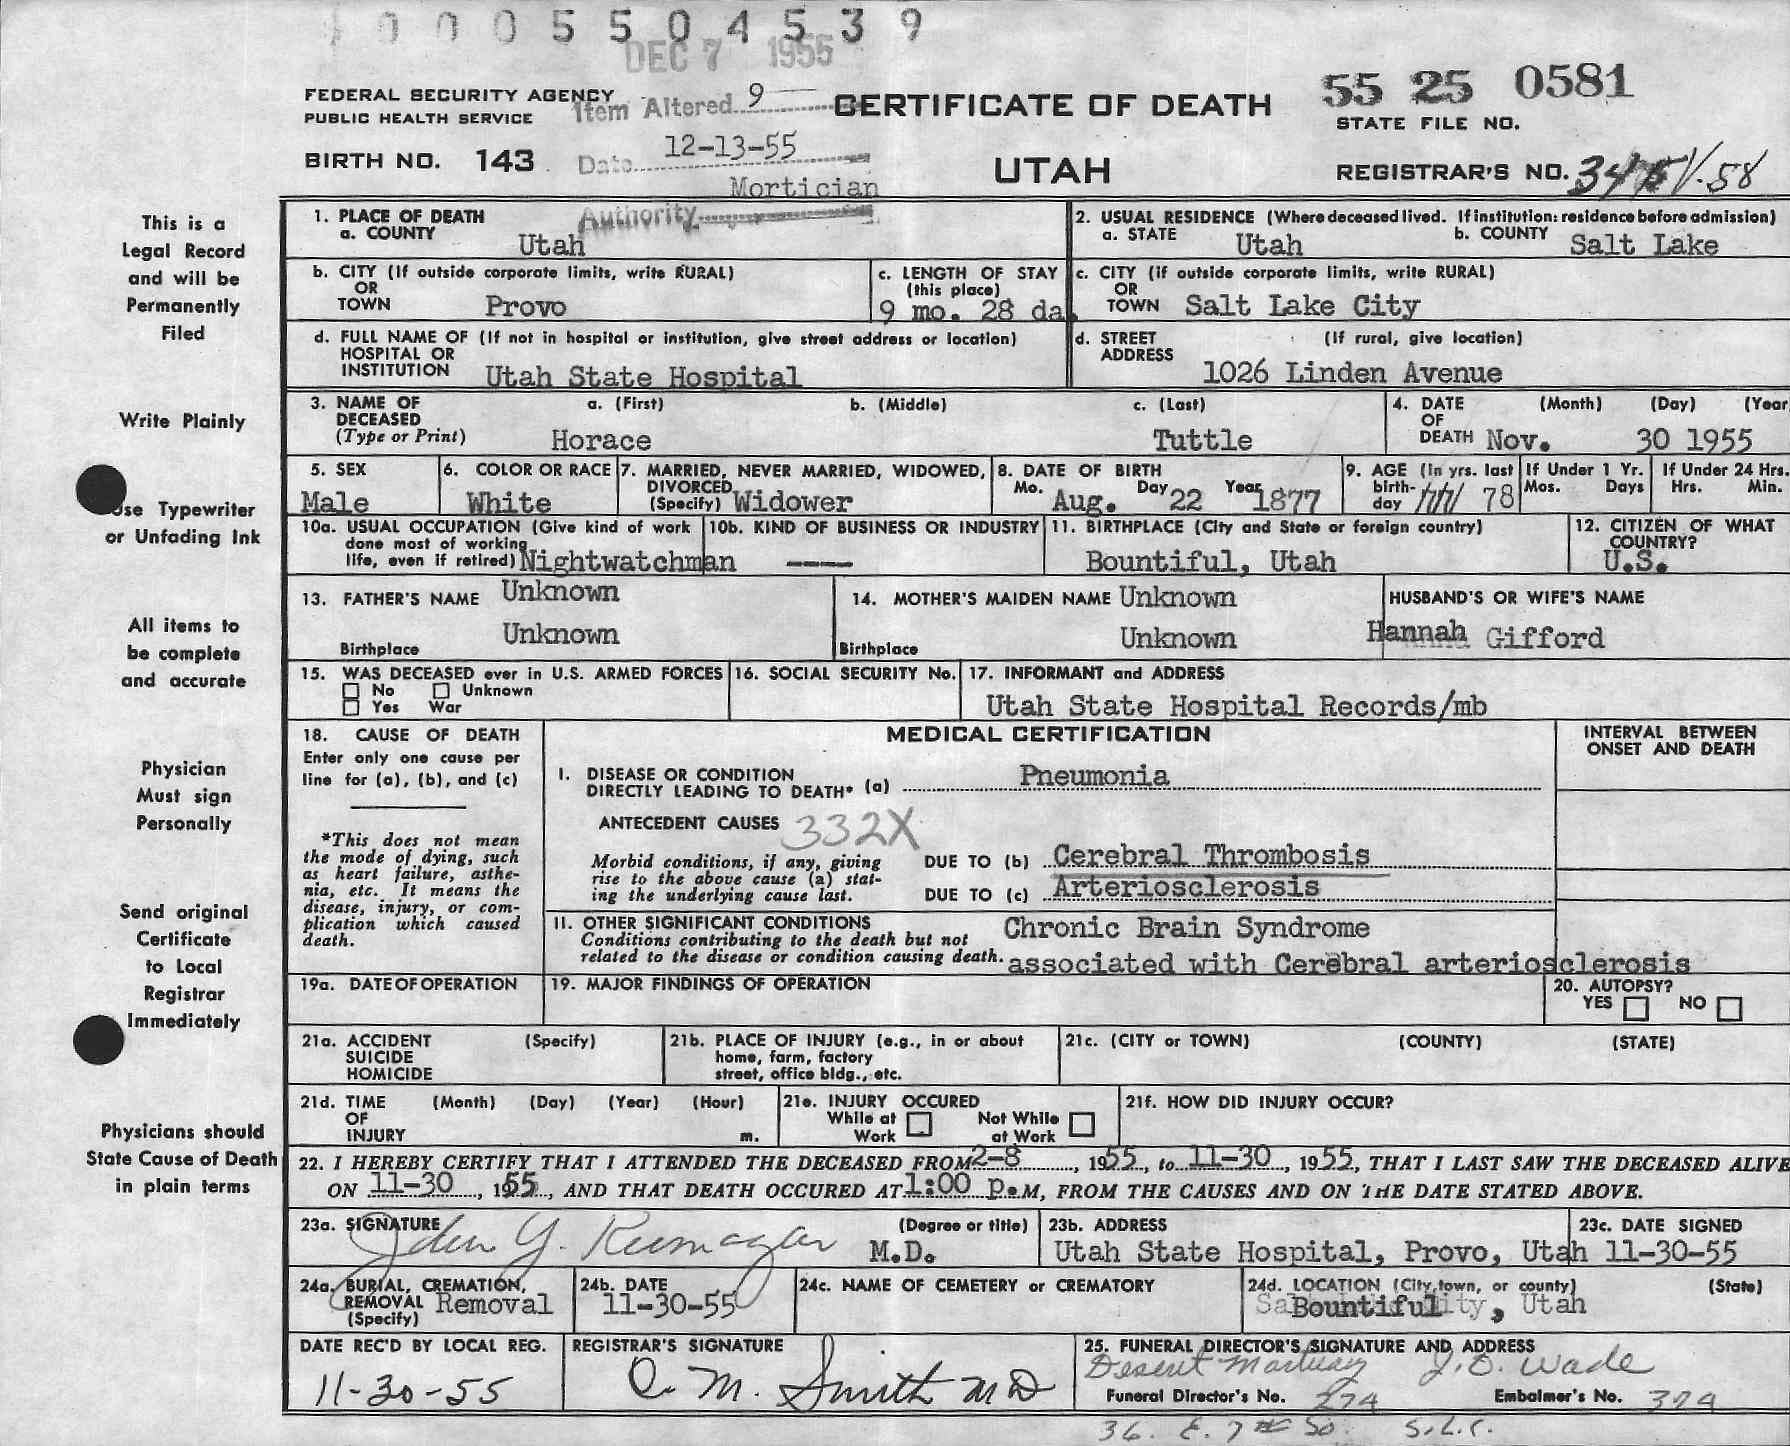 0 0 0 5 5 0 4 5 3 9
DEC 7 1955
FEDERAL SECURITY AGENCY
PUBLIC HEALTH SERVICE
Item Altered 9
CERTIFICATE OF DEATH
55 25 0581
STATE FILE NO.
BIRTH NO. 143
Date 12-13-55
UTAH
REGISTRAR'S NO.
Mortician
Authority
This is a
Legal Record
and will be
Permanently
Filed
1. PLACE OF DEATH
a. COUNTY Utah
2. USUAL RESIDENCE (Where deceased lived. If institution: residence before admission)
a. STATE Utah b. COUNTY Salt Lake
b. CITY (If outside corporate limits, write RURAL)
OR
TOWN Provo
c. LENGTH OF STAY
(this place)
9 mo. 28 da.
c. CITY (if outside corporate limits, write RURAL)
OR
TOWN Salt Lake City
d. FULL NAME OF (If not in hospital or institution, give street address or location)
HOSPITAL OR
INSTITUTION Utah State Hospital
d. STREET (If rural, give location)
ADDRESS
1026 Linden Avenue
Write Plainly
3. NAME OF a. (First) b. (Middle) c. (Last)
DECEASED
(Type or Print) Horace Tuttle
4. DATE (Month) (Day) (Year
OF
DEATH Nov. 30 1955
Use Typewriter
or Unfading Ink
5. SEX
Male
6. COLOR OR RACE
White
7. MARRIED, NEVER MARRIED, WIDOWED,
DIVORCED
(Specify) Widower
8. DATE OF BIRTH
Mo. Day Year
Aug. 22 1877
9. AGE (In yrs. last
birth-
day 78
If Under 1 Yr.
Mos. Days
If Under 24 Hrs.
Hrs. Min.
10a. USUAL OCCUPATION (Give kind of work
done most of working
life, even if retired) Nightwatchman
10b. KIND OF BUSINESS OR INDUSTRY
----
11. BIRTHPLACE (City and State or foreign country)
Bountiful, Utah
12. CITIZEN OF WHAT
COUNTRY?
U.S.
All items to
be complete
and accurate
13. FATHER'S NAME Unknown
Birthplace Unknown
14. MOTHER'S MAIDEN NAME Unknown
Birthplace Unknown
HUSBAND'S OR WIFE'S NAME
Hannah Gifford
15. WAS DECEASED ever in U.S. ARMED FORCES
No Unknown
Yes War
16. SOCIAL SECURITY No.
17. INFORMANT and ADDRESS
Utah State Hospital Records/mb
Physician
Must sign
Personally
18. CAUSE OF DEATH
Enter only one cause per
line for (a), (b), and (c)
*This does not mean
the mode of dying, such
as heart failure, asthe-
nia, etc. It means the
disease, injury, or com-
plication which caused
death.
MEDICAL CERTIFICATION
INTERVAL BETWEEN
ONSET AND DEATH
I. DISEASE OR CONDITION
DIRECTLY LEADING TO DEATH* (a) Pneumonia
ANTECEDENT CAUSES 332X
Morbid conditions, if any, giving
rise to the above cause (a) stat-
ing the underlying cause last.
DUE TO (b) Cerebral Thrombosis
DUE TO (c) Arteriosclerosis
II. OTHER SIGNIFICANT CONDITIONS
Conditions contributing to the death but not
related to the disease or condition causing death.
Chronic Brain Syndrome
associated with Cerebral arteriosclerosis
Send original
Certificate
to Local
Registrar
Immediately
19a. DATE OF OPERATION
19. MAJOR FINDINGS OF OPERATION
20. AUTOPSY?
YES NO
21a. ACCIDENT (Specify)
SUICIDE
HOMICIDE
21b. PLACE OF INJURY (e.g., in or about
home, farm, factory
street, office bldg., etc.
21c. (CITY or TOWN) (COUNTY) (STATE)
21d. TIME (Month) (Day) (Year) (Hour)
OF
INJURY m.
21e. INJURY OCCURED
While at Not While
Work at Work
21f. HOW DID INJURY OCCUR?
Physicians should
State Cause of Death
in plain terms
22. I HEREBY CERTIFY THAT I ATTENDED THE DECEASED FROM 2-8, 1955, to 11-30, 1955, THAT I LAST SAW THE DECEASED ALIVE
ON 11-30, 1955, AND THAT DEATH OCCURED AT 1:00 p.M, FROM THE CAUSES AND ON THE DATE STATED ABOVE.
23a. SIGNATURE (Degree or title)
M.D.
23b. ADDRESS
Utah State Hospital, Provo, Utah
23c. DATE SIGNED
11-30-55
24a. BURIAL, CREMATION,
REMOVAL Removal
(Specify)
24b. DATE
11-30-55
24c. NAME OF CEMETERY or CREMATORY
24d. LOCATION (City, town, or county) (State)
Bountiful, Utah
DATE REC'D BY LOCAL REG.
11-30-55
REGISTRAR'S SIGNATURE
O. M. Smith MD
25. FUNERAL DIRECTOR'S SIGNATURE AND ADDRESS
Deseret Mortuary J. O. Wade
Funeral Director's No. 274 Embalmer's No. 379
36. E. 7th So. S.L.C.